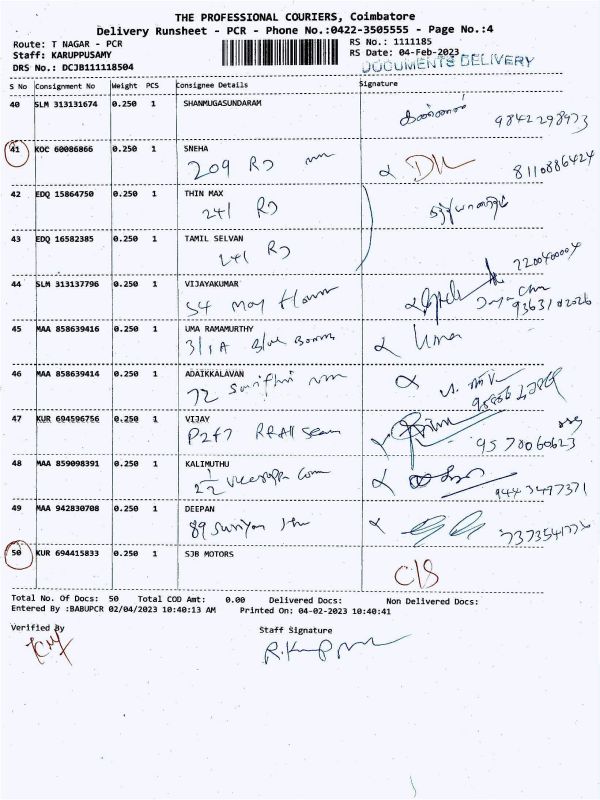 THE PROFESSIONAL COURIERS, Coimbatore
Delivery Runsheet - PCR - Phone No.:0422-3505555 - Page No.:4
Route: T NAGAR - PCR
Staff: KARUPPUSAMY
DRS No.: DCJB111118504
RS No.: 1111185
RS Date: 04-Feb-2023
DOCUMENTS DELIVERY
S No Consignment No Weight PCS Consignee Details Signature
40 SLM 313131674 0.250 1 SHANMUGASUNDARAM
9842298973
41 KOC 60086866 0.250 1 SNEHA
209 RD
8110886424
42 EDQ 15864750 0.250 1 THIN MAX
241 RD
43 EDQ 16582385 0.250 1 TAMIL SELVAN
241 RD
44 SLM 313137796 0.250 1 VIJAYAKUMAR
54 may flower
45 MAA 858639416 0.250 1 UMA RAMAMURTHY
3/1A Blue
Uma
46 MAA 858639414 0.250 1 ADAIKKALAVAN
72
47 KUR 694596756 0.250 1 VIJAY
P247
9570060623
48 MAA 859098391 0.250 1 KALIMUTHU
9443497371
49 MAA 942830708 0.250 1 DEEPAN
89
50 KUR 694415833 0.250 1 SJB MOTORS
C/S
Total No. Of Docs: 50 Total COD Amt: 0.00 Delivered Docs: Non Delivered Docs:
Entered By :BABUPCR 02/04/2023 10:40:13 AM Printed On: 04-02-2023 10:40:41
Verified By
Staff Signature